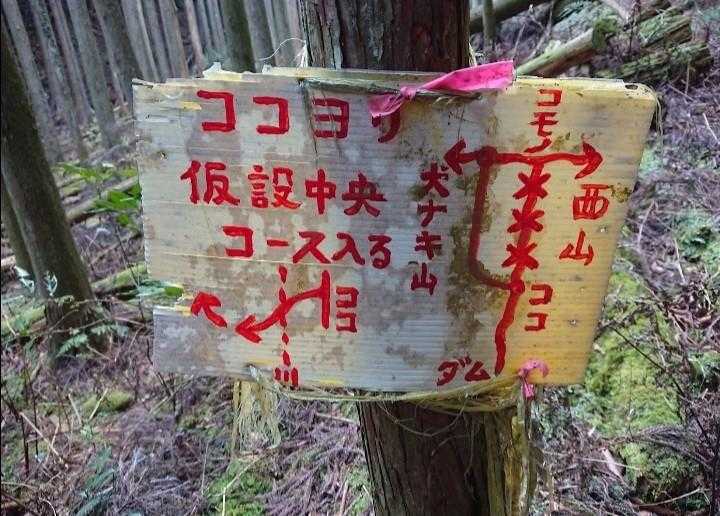 ココヨリ
仮設中央
コース入る
ココ
川
コモノ
犬ナキ山
西山
ココ
ダム